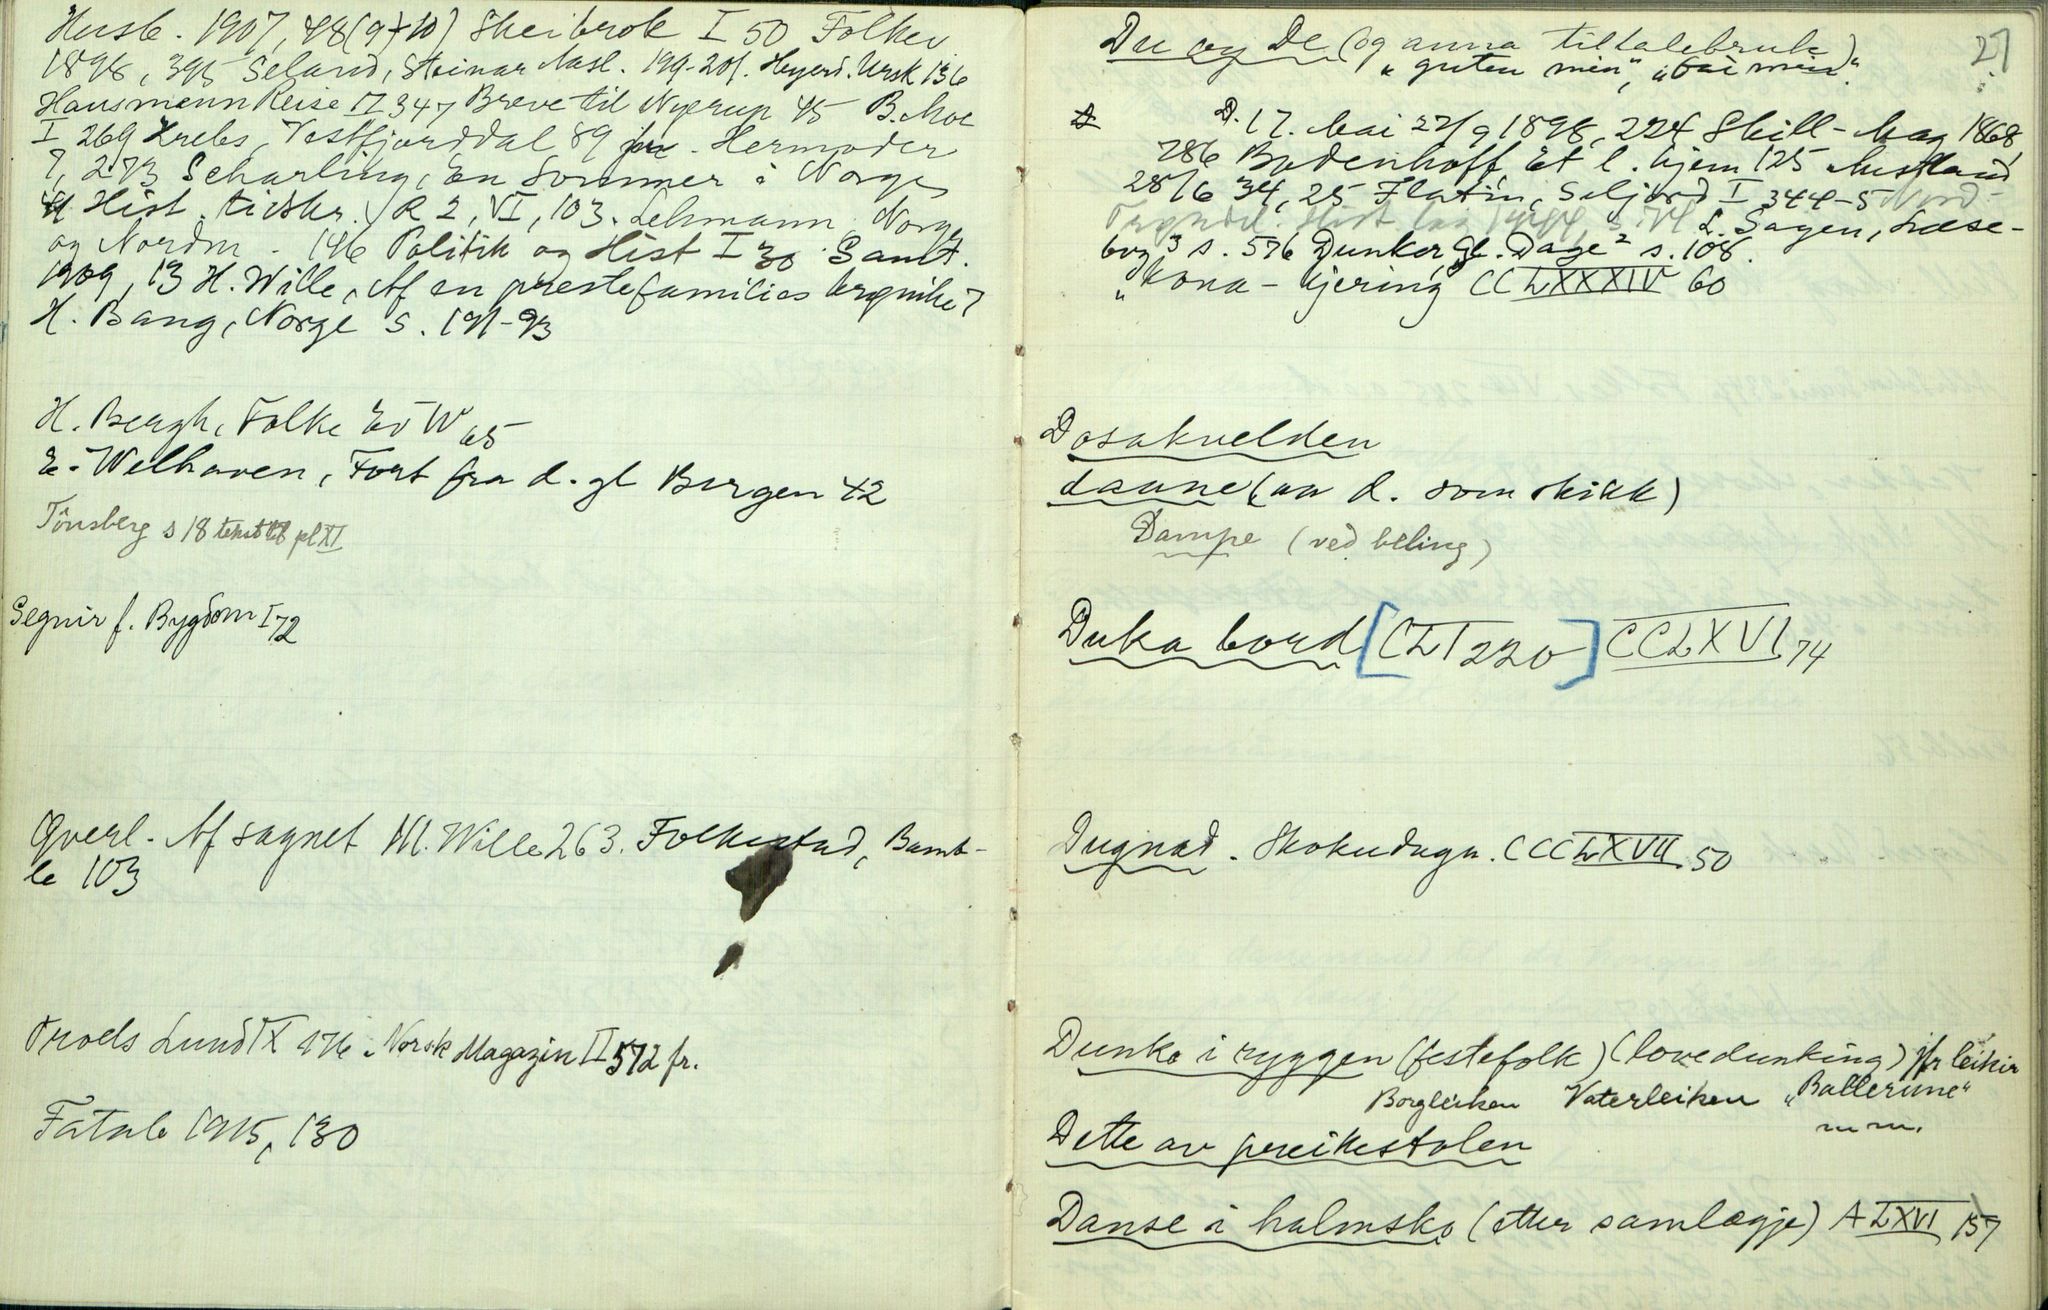 Husb. 1907, 48(9+10) Skeibrok I 50 Folkev
1898, 395 Seland, Steinar Aasl. 199-201. Høyerd. Ursk 136
Hausmann Reise II 347 Breve til Nyerup 45 B. Moe
I 269 Krebs, Vestfjorddal 89 Hermoder
7, 273 Scharling, En Sommer i Norge
Hist. tidskr. R 2, VI, 103. Lehmann, Norge
og Nordm. 146 Politik og Hist I 30 Samt.
1909, 13 H. Wille, Af en præstefamilies krønike 7
H. Bang, Norge s. 191-93
H. Bergh, Folke Ev W 65
E. Welhaven, Fort fra d. gl Bergen 42
Tönsberg s 18 tekst til pl XI
Segnir f. Bygdom I 72
Qverl. Af sagnet Wille 263. Folkestad, Bamb-
le 103
Troels Lund IX 176. Norsk Magazin II 572 fr.
Fatab 1915, 130
27
Du og De (og anna tiltalebruk)
"guten min", "far min".
D. 17. Mai 27/9 1898, 224 Skill-Mag 1868,
786 Bodenhoff Et l. hjem 125 Austland
28/6 34, 25 Flatin, Seljord I 344-5 Nord-
Trøndel. Hist. lag L. Sagen, Læse-
bog 3 s. 576 Dunker, Gl. Dage 2 s. 108.
"Kona - kjering CCLXXXIV 60
Dosakvelden
daune (av d. som skikk)
Dampe (ved beling)
Duka bord [CLI 220] CCLXVI 74
Dugnad. Skokudugn. CCCLXVII 50
Dunke i ryggen (festefolk) (lovedunking) jfr leikir
Borgleiken Vaterleiken "Ballerune"
m m.
Dette av preikestolen
Danse i halmsko (etter samlægje) A LXVI 157